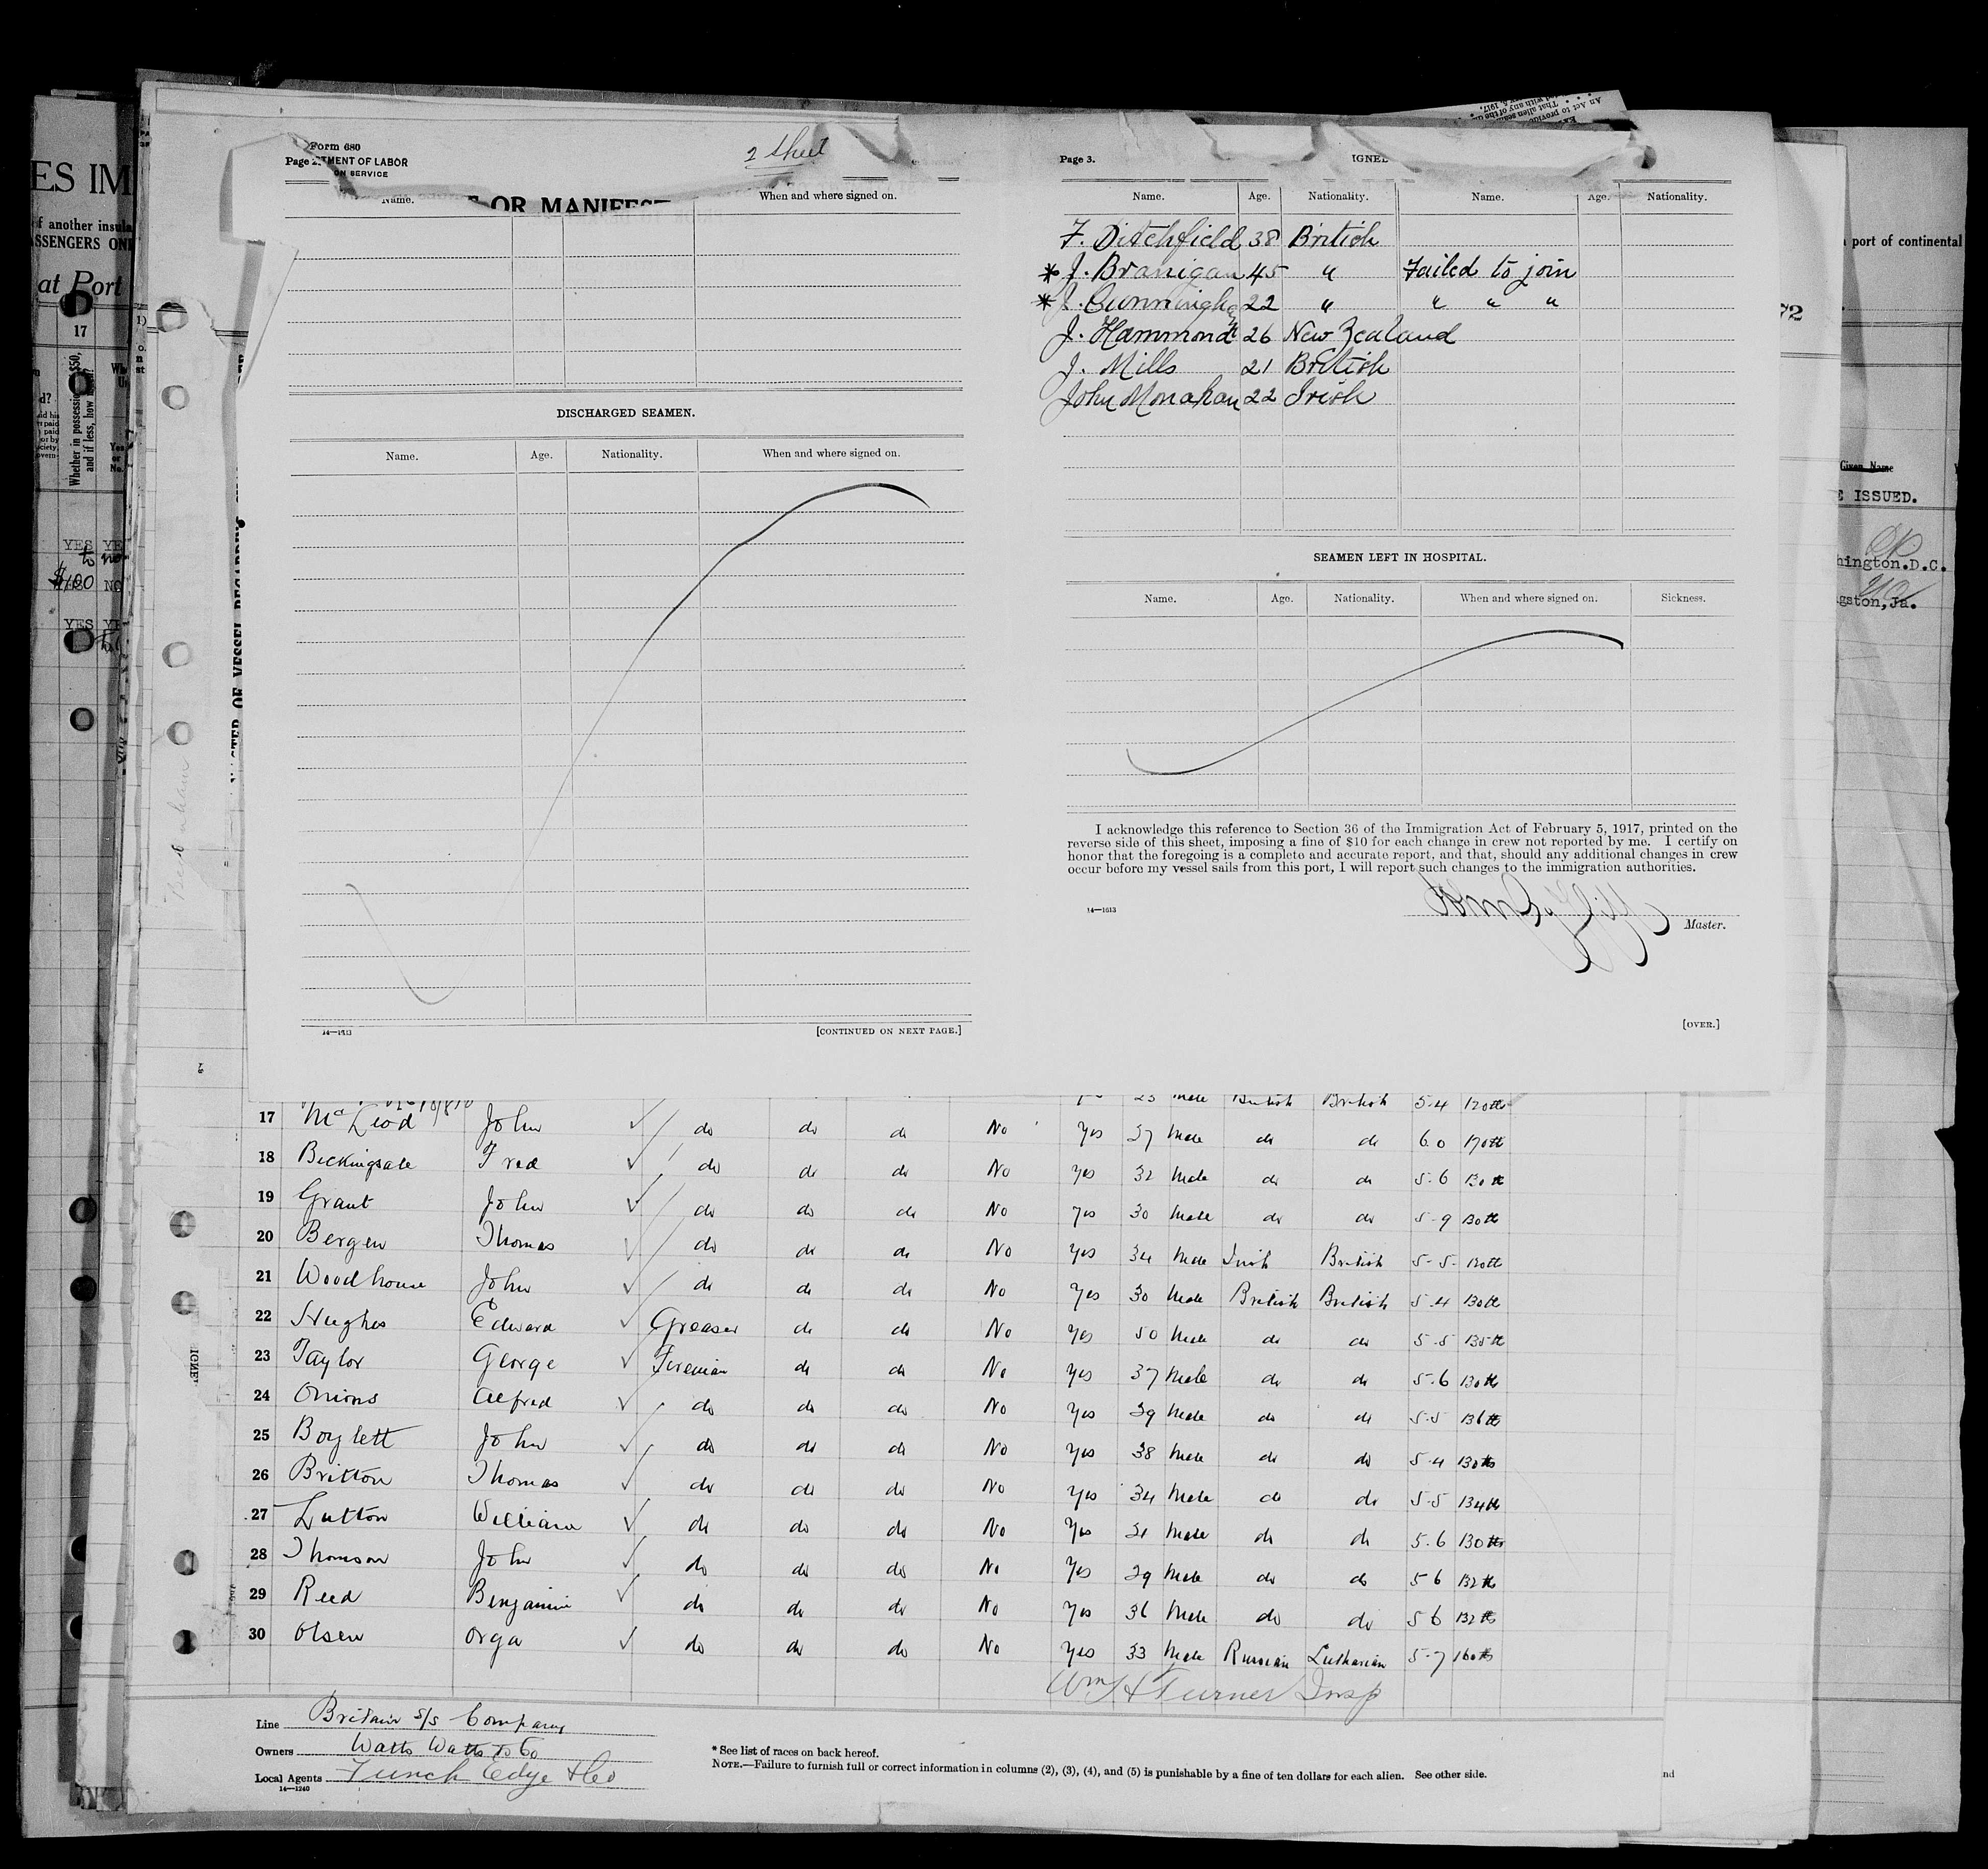 Form 680
Page 2.
TMENT OF LABOR
ON SERVICE
2 sheet
OR MANIFEST
Name.
When and where signed on.
DISCHARGED SEAMEN.
Name. Age. Nationality. When and where signed on.
14—1613
[CONTINUED ON NEXT PAGE.]
Page 3.
IGNED
Name. Age. Nationality. Name. Age. Nationality.
F. Ditchfield 38 British
* J. Branigan 45 " Failed to join
* J. Cunningham 22 " " " "
J. Hammond 26 New Zealand
J. Mills 21 British
John Monahan 22 Irish
SEAMEN LEFT IN HOSPITAL.
Name. Age. Nationality. When and where signed on. Sickness.
I acknowledge this reference to Section 36 of the Immigration Act of February 5, 1917, printed on the
reverse side of this sheet, imposing a fine of $10 for each change in crew not reported by me. I certify on
honor that the foregoing is a complete and accurate report, and that, should any additional changes in crew
occur before my vessel sails from this port, I will report such changes to the immigration authorities.
14—1613
Master.
[OVER.]
23 Male British British 5.4 120 lbs
17 McLeod John ✓ do do do No Yes 37 Male do do 6.0 170 lb
18 Beckingsale Fred ✓ do do do No Yes 32 Male do do 5.6 130 lb
19 Grant John ✓ do do do No Yes 30 Male do do 5-9 130 lb
20 Bergen Thomas ✓ do do do No Yes 34 Male Irish British 5-5- 130 lb
21 Woodhouse John ✓ do do do No Yes 30 Male British British 5.4 130 lb
22 Hughes Edward ✓ Greaser do do No Yes 50 Male do do 5-5 135 lb
23 Taylor George ✓ Fireman do do No Yes 37 Male do do 5.6 130 lb
24 Onions Alfred ✓ do do do No Yes 39 Male do do 5-5 136 lb
25 Boylett John ✓ do do do No Yes 38 Male do do 5.4 130 lbs
26 Britton Thomas ✓ do do do No Yes 34 Male do do 5-5 134 lb
27 Lutton William ✓ do do do No Yes 31 Male do do 5.6 130 lbs
28 Thomson John ✓ do do do No Yes 39 Male do do 5 6 132 lb
29 Reed Benjamin ✓ do do do No Yes 36 Male do do 5 6 132 lb
30 Olsen Orga ✓ do do do No Yes 33 Male Russian Lutharian 5-7 160 lb
Wm H Turner Insp
Line Britain S/S Company
Owners Watts Watts & Co
Local Agents Funch Edye & Co
14—1240
* See list of races on back hereof.
NOTE.—Failure to furnish full or correct information in columns (2), (3), (4), and (5) is punishable by a fine of ten dollars for each alien. See other side.
ES IM
of another insula
ASSENGERS ON
at Port
17
Whether in possession of $50,
and if less, how much?
YES
$100 NO
YES
port of continental
72
Given Name
E ISSUED.
hington.D.C.
gston,Ja.